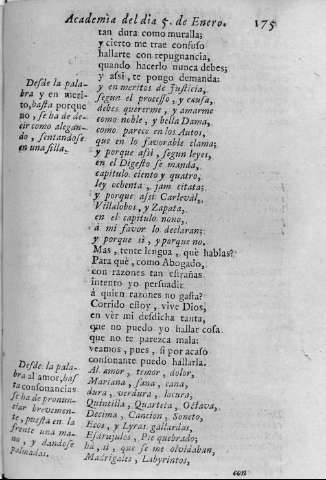 Academia del dia 5. de Enero. 175
tan dura como muralla;
y cierto me trae confuso
hallarte con repugnancia,
quando hacerlo nunca debes;
y assi, te pongo demanda:
Desde la pala-
bra y en meri-
to, hasta porque
no, se ha de de-
cir como alegan-
do, sentandose
en una silla.
y en meritos de Justicia,
segun el processo, y causa,
debes quererme, y amarme
como noble, y bella Dama,
como parece en los Autos,
que en lo favorable clama;
y porque assi, segun leyes,
en el Digesto se manda,
capitulo ciento y quatro,
ley ochenta, jam citata;
y porque assi Carleval,
Villalobos, y Zapata,
en el capitulo nono,
à mi favor lo declaran;
y porque si, y porque no.
Mas, tente lengua, què hablas?
Para què, como Abogado,
con razones tan estrañas
intento yo persuadir
à quien razones no gasta?
Corrido estoy, vive Dios,
en vèr mi desdicha tanta,
que no puedo yo hallar cosa
que no te parezca mala:
veamos, pues, si por acaso
consonante puedo hallarla.
Desde la pala-
bra al amor, has
ta consonancias
se ha de pronun-
ciar brevemen-
te, puesta en la
frente una ma-
no, y dandose
palmadas.
Al amor, temor, dolor,
Mariana, sana, cana,
dura, verdura, locura,
Quintilla, Quarteta, Octava,
Decima, Cancion, Soneto,
Ecos, y Lyras gallardas,
Esdrujulos, Pie quebrado;
ha, si, que se me olvidaban,
Madrigales, Labyrintos,
con